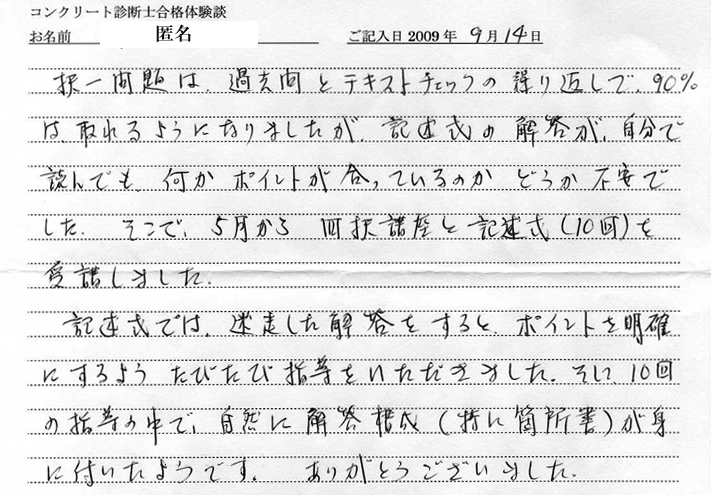 コンクリート診断士合格体験談
お名前 匿名 ご記入日 2009 年 9月 14日
択一問題は、過去問とテキストチェックの繰り返しで、90%
は、取れるようになりましたが、記述式の解答が、自分で
読んでも、何かポイントが合っているのか どうか不安で
した。そこで、5月から 四択講座と記述式(10回)を
受講しました。
記述式では、迷走した解答をすると、ポイントを明確
にするよう たびたび指導をいただきました。そして10回
の指導の中で、自然に解答構成(特に箇所書)が身
に付いたようです。 ありがとうございました。